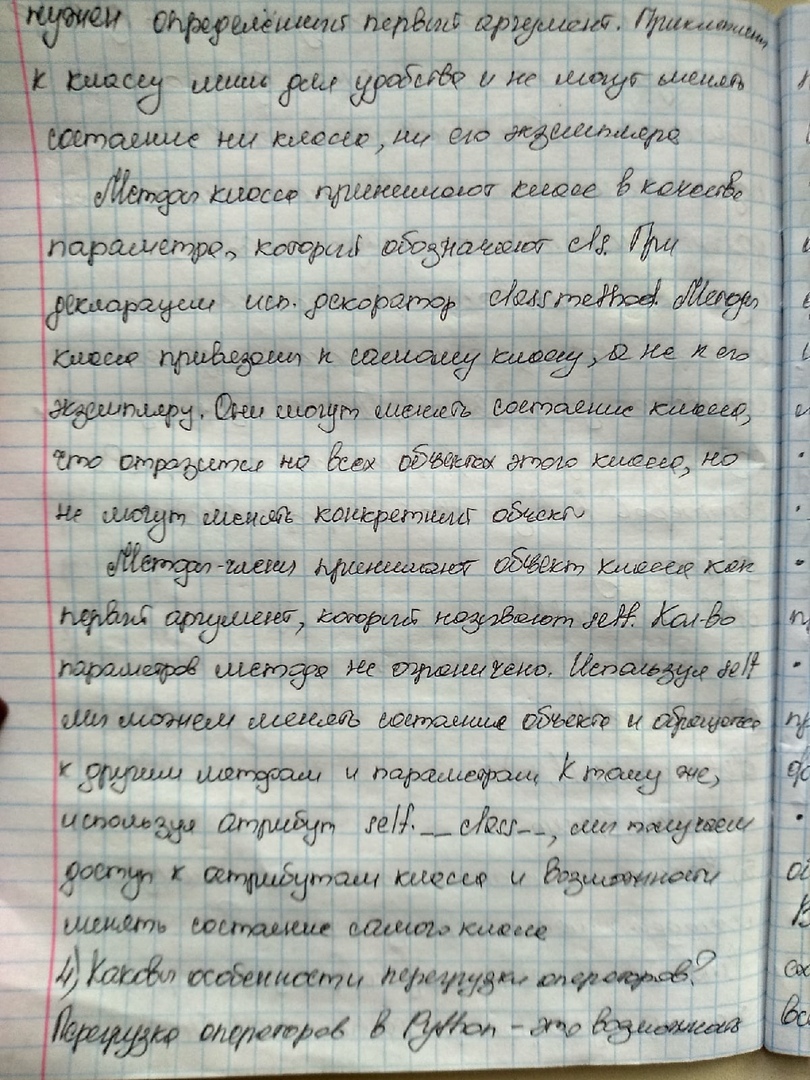 нужен определённый первый аргумент. Прикреплены
к классу лишь для удобства и не могут менять
состояние ни класса, ни его экземпляра
Методы класса принимают класс в качестве
параметра, который обозначают cls. При
декларации исп. декоратор classmethod. Методы
класса привязаны к самому классу, а не к его
экземпляру. Они могут менять состояние класса,
что отразится на всех объектах этого класса, но
не могут менять конкретный объект
Методы-члены принимают объект класса как
первый аргумент, который называют self. Кол-во
параметров метода не ограничено. Используя self
мы можем менять состояние объекта и обращаться
к другим методам и параметрам. К тому же,
используя атрибут self.__class__, мы получаем
доступ к атрибутам класса и возможности
менять состояние самого класса
4) Каковы особенности перегрузки операторов?
Перегрузка операторов в Python - это возможность